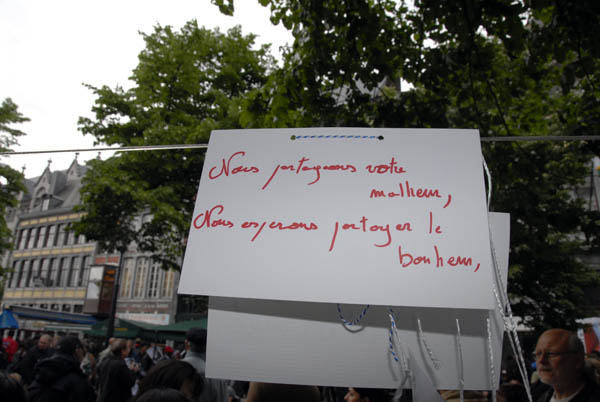 Nous partageons votre
malheur,
Nous esperons partager le
bonheur,